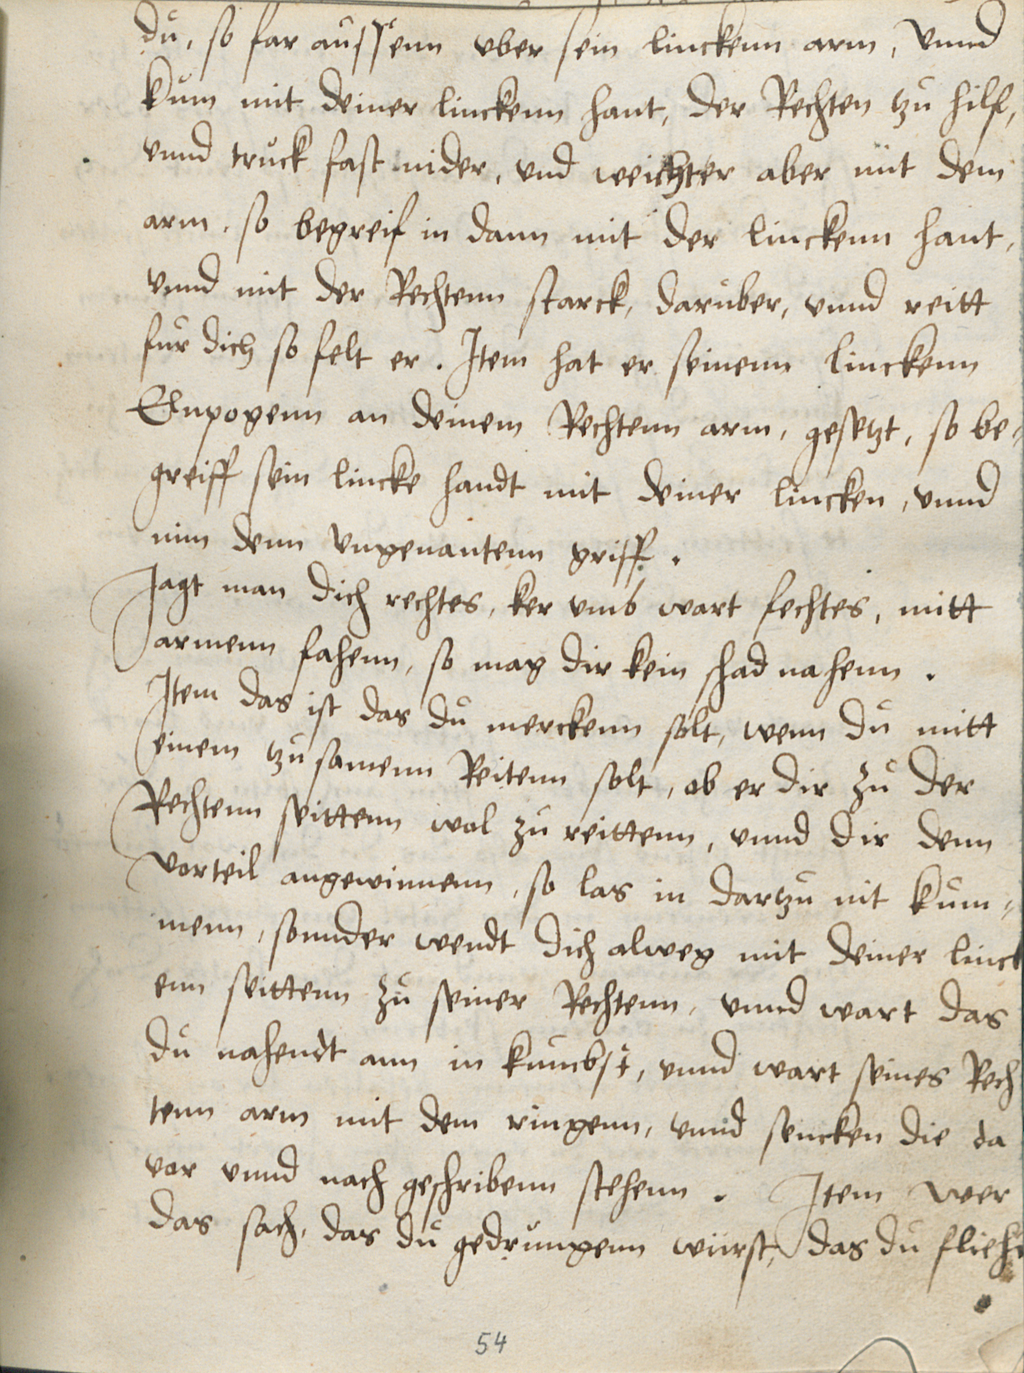 du, so far aussenn vber sein linckenn arm, vnnd
kum mit deiner linckenn hant, der Rechten tzu hilf,
vnnd truck fast nider, vnd weichter aber mit dem
arm, so begreif in dann mit der linckenn hant,
vnnd mit der Rechtenn starck, daruber, vnnd reitt
fur dich so felt er. Item hat er seinenn linckenn
Elnpogenn an deinem Rechtenn arm, gesetzt, so be-
greiff sein lincke handt mit deiner lincken, vnnd
nim denn vngenantenn griff.
Jagt man dich rechtes, ker vmb wart fechtes, mitt
armenn fahenn, so mag dir kein shad nahenn.
Item das ist das du merckenn solt, wenn du mitt
einem tzusamenn Reitenn solt, ob er dir zu der
Rechtenn seittenn wol zu reittenn, vnnd dir denn
vorteil angewinnenn, so las in dartzu nit kum-
menn, sonnder wendt dich alweg mit deiner linck
enn seittenn zu seiner Rechtenn, vnnd wart das
du nahendt ann in kumbst, vnnd wart seines Rech
tenn arm mit dem ringenn, vnnd sencken die da
vor vnnd nach geschribenn stehenn. Item wer
das sach, das du gedrungenn wurst, das du flieh
54